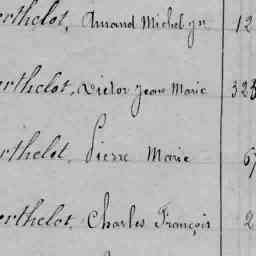 erthelot, Amand Michel jn 12
erthelot, Victor Jean Marie 325
rthelot, Pierre Marie 67
erthelot, Charles François 2